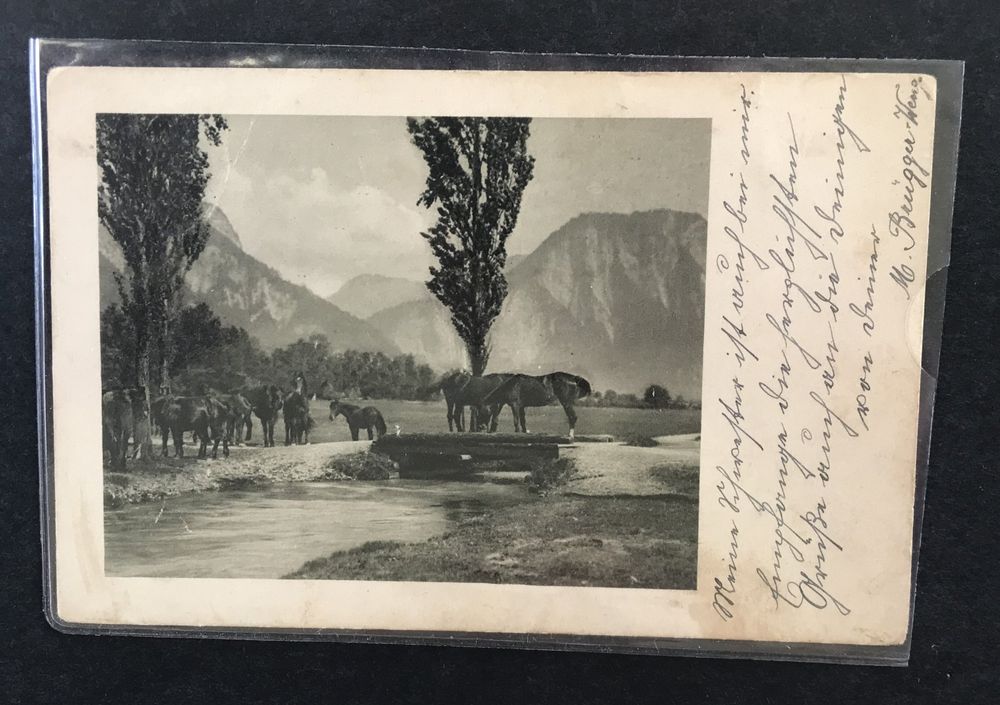 Meine Schwester ist auch bei mir.
Empfange die herzlichsten
Grüße auch an die deinigen
von deiner
M. Brügger-Weng.